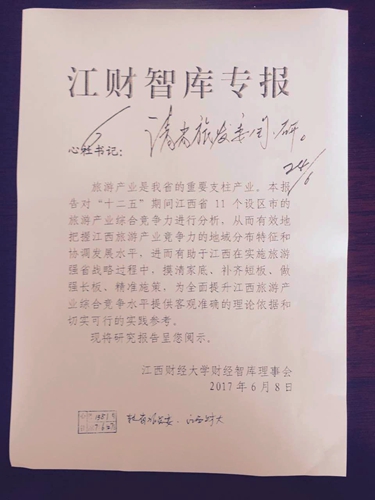 江财智库专报
请省旅发委阅研。
24/6
心社书记：
旅游产业是我省的重要支柱产业。本报
告对“十二五”期间江西省 11 个设区市的
旅游产业综合竞争力进行分析、从而有效地
把握江西旅游产业竞争力的地域分布特征和
协调发展水平，进而有助于江西在实施旅游
强省战略过程中，摸清家底、补齐短板、做
强长板、精准施策，为全面提升江西旅游产
业综合竞争水平提供客观准确的理论依据和
切实可行的实践参考。
现将研究报告呈您阅示。
江西财经大学财经智库理事会
2017 年 6 月 8 日